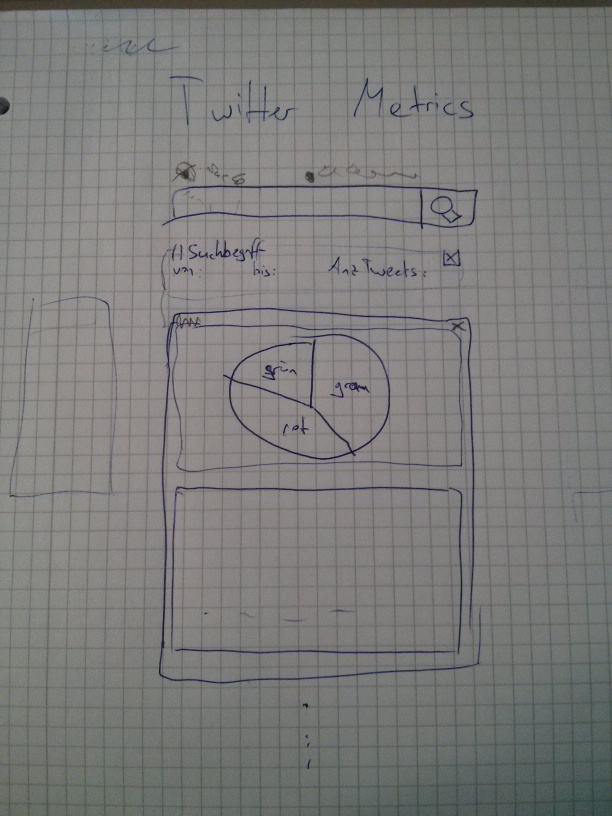 Twitter Metrics
# Suchbegriff
von: bis: Anz Tweets:
grün
grau
rot